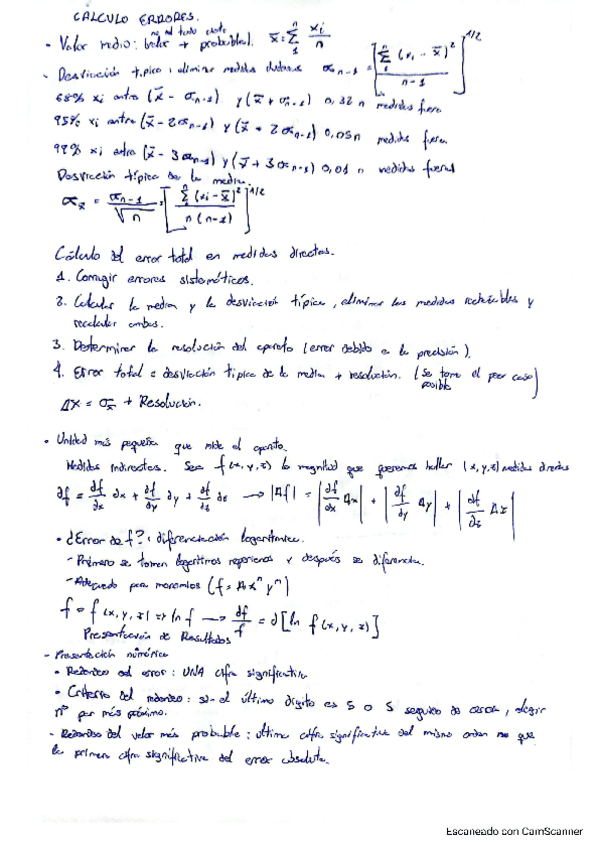 CALCULO ERRORES.
no del todo cierto
- Valor medio: valor + probable. x̄ = Σ₁ⁿ xi/n
- Desviación típica: eliminar medidas dudosas σn-1 = [Σ₁ⁿ (xi - x̄)² / n-1]^1/2
68% xi entre (x̄ - σn-1) y (x̄ + σn-1) 0,32 n medidas fuera
95% xi entre (x̄ - 2σn-1) y (x̄ + 2σn-1) 0,05 n medidas fuera.
99% xi entre (x̄ - 3σn-1) y (x̄ + 3σn-1) 0,01 n medidas fuera
Desviación típica de la media.
σx̄ = σn-1/√n = [Σ₁ⁿ (xi - x̄)² / n(n-1)]^1/2
Cálculo del error total en medidas directas.
1. Corregir errores sistemáticos.
2. Calcular la media y la desviación típica, eliminar las medidas rechazables y
recalcular ambas.
3. Determinar la resolución del aparato (error debido a la precisión).
4. Error total = desviación típica de la media + resolución. (se tome el peor caso
posible)
Δx = σx̄ + Resolución.
• Unidad más pequeña que mide el aparato.
Medidas indirectas. Sea f(x,y,z) la magnitud que queremos hallar (x,y,z) medidas directas
∂f = df/dx dx + df/dy dy + df/dz dz → |Δf| = |df/dx Δx| + |df/dy Δy| + |df/dz Δz|
• ¿Error de f?: diferenciación logarítmica.
- Primero se toman logaritmos neperianos y después se diferencia.
- Adecuado para monomios (f = Axⁿ yᵐ)
f = f(x,y,z) ⇒ ln f → df/f = d[ln f(x,y,z)]
Presentación de Resultados
- Presentación numérica
• Redondeo del error: UNA cifra significativa
• Criterio del redondeo: si el último dígito es 5 o 5 seguido de ceros, elegir
nº par más próximo.
- Redondeo del valor más probable: última cifra significativa del mismo orden que
la primera cifra significativa del error absoluto.
Escaneado con CamScanner